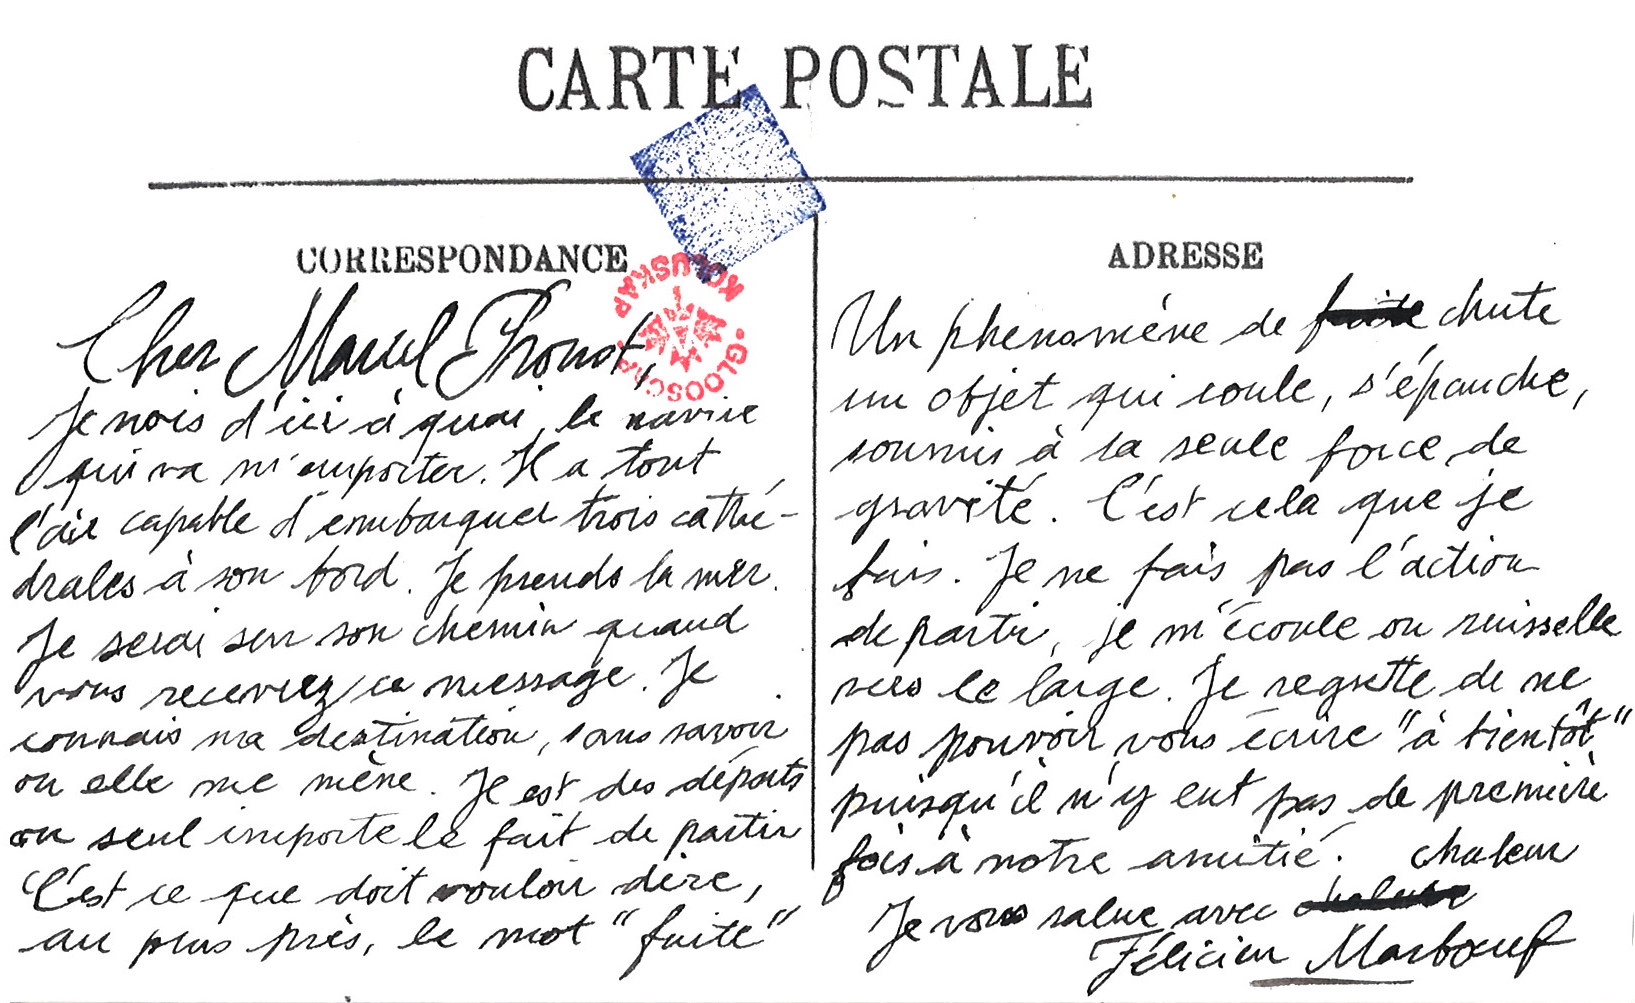 CARTE POSTALE
CORRESPONDANCE
Cher Marcel Proust,
Je vois d'ici à quai, le navire
qui va m'emporter. Il a tout
l'air capable d'embarquer trois cathé-
drales à son bord. Je prends la mer.
Je serai sur son chemin quand
vous recevrez ce message. Je
connais ma destination, sans savoir
où elle me mène. Il est des départs
où seul importe le fait de partir
C'est ce que doit vouloir dire,
au plus près, le mot "fuite"
ADRESSE
Un phénomène de fuite chute
un objet qui coule, s'épanche,
soumis à la seule force de
gravité. C'est cela que je
fais. Je ne fais pas l'action
de partir, je m'écoule ou ruisselle
vers le large. Je regrette de ne
pas pouvoir vous écrire "à bientôt"
puisqu'il n'y eut pas de première
fois à notre amitié. chaleur
Je vous salue avec
Félicien Marboeuf
KOLUSKAP
GLOOSCAP